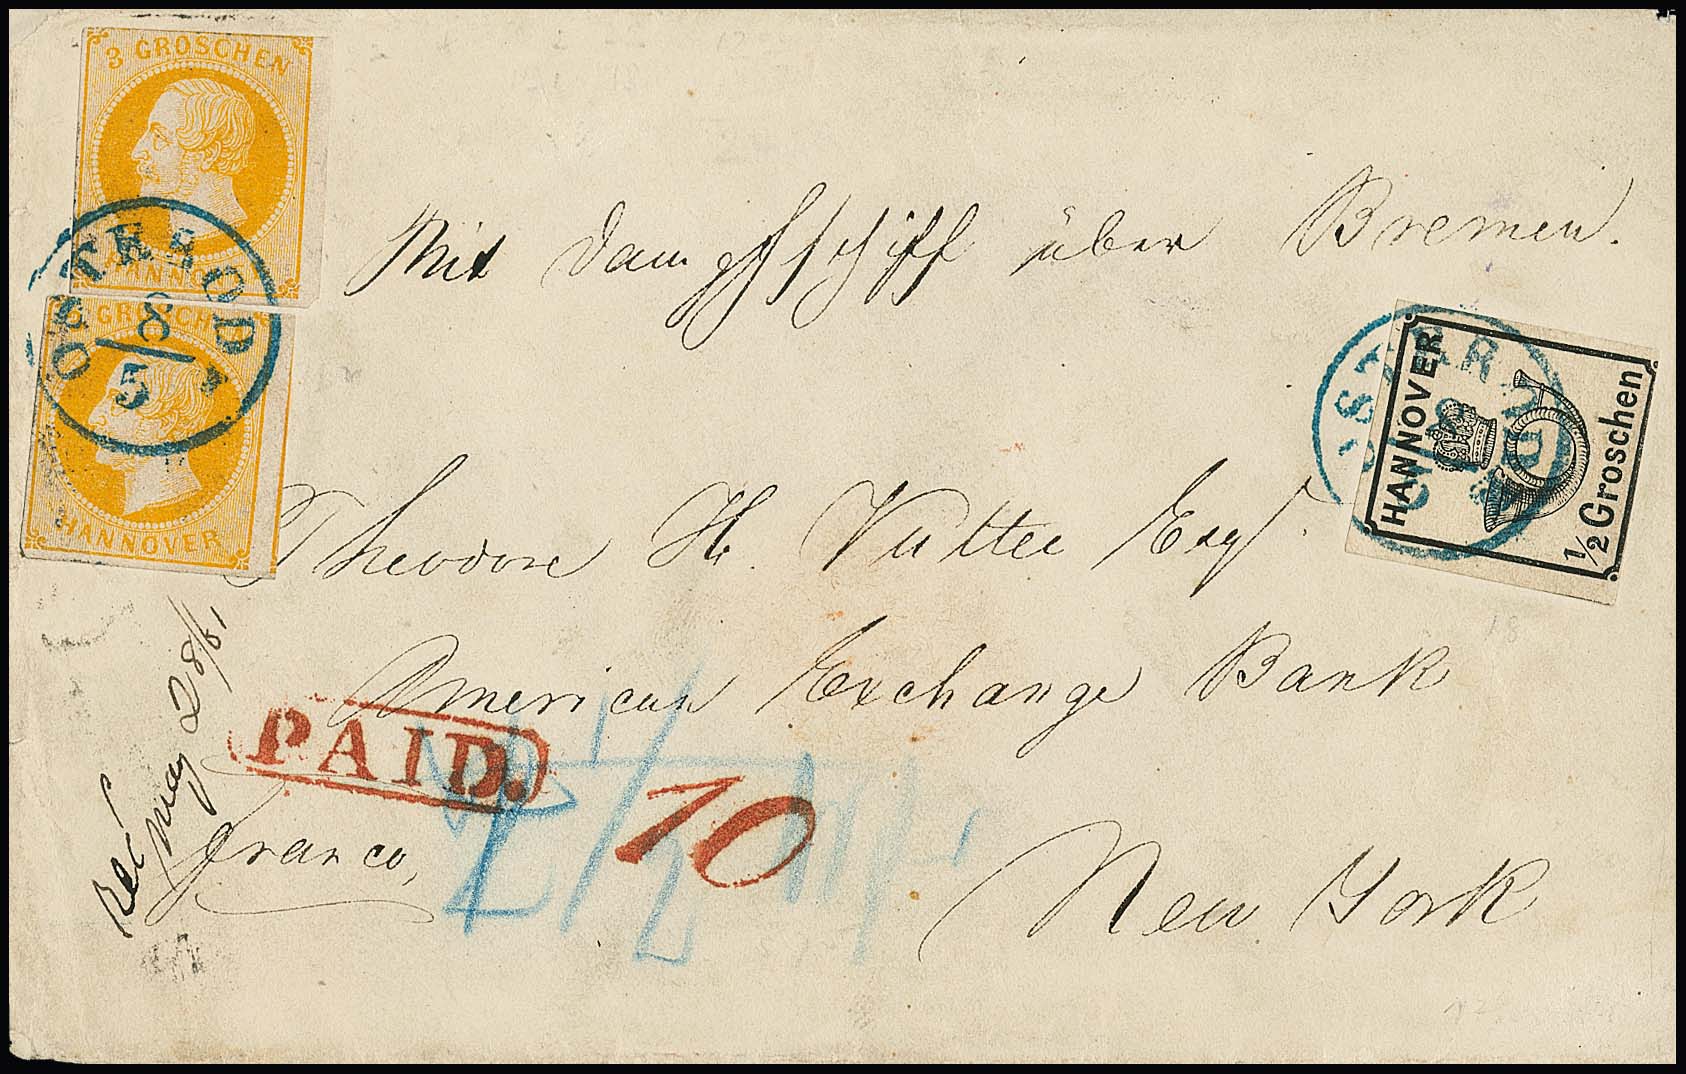 3 GROSCHEN
HANNOVER
3 GROSCHEN
HANNOVER
OSTERODE
8
5
Mit Dampfschiff über Bremen.
HANNOVER
1/2 Groschen
OSTERODE
8
5
Theodore H. Vultee Esq.
American Exchange Bank
New York
PAID.
10
franco,
Rec' May 28/61